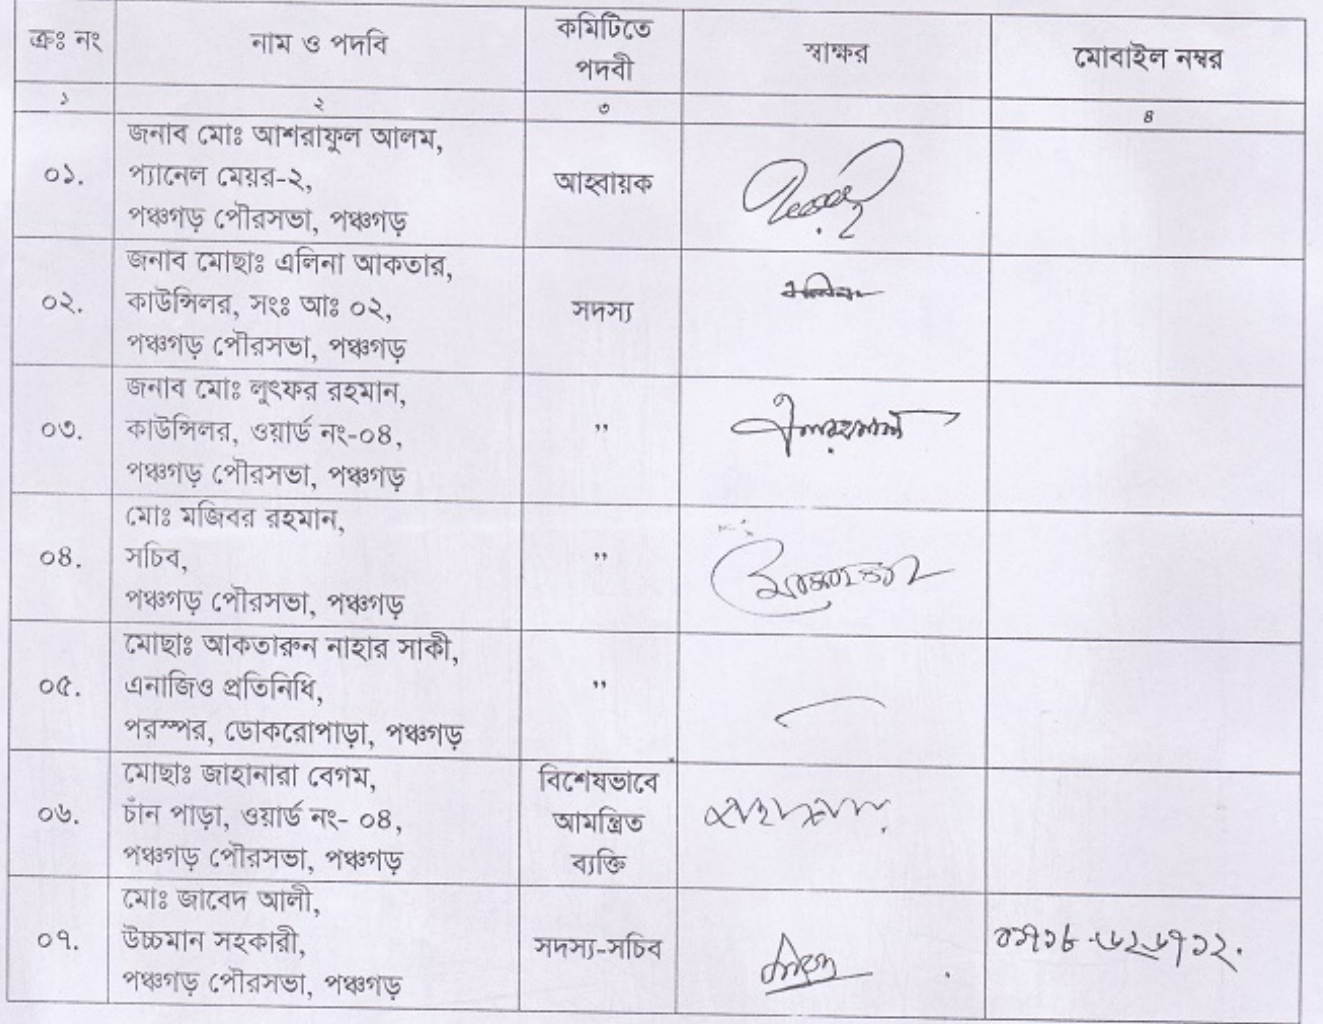 ক্রঃ নং নাম ও পদবি কমিটিতে পদবী স্বাক্ষর মোবাইল নম্বর
১ ২ ৩ ৪
০১. জনাব মোঃ আশরাফুল আলম,
প্যানেল মেয়র-২,
পঞ্চগড় পৌরসভা, পঞ্চগড়
আহ্বায়ক
০২. জনাব মোছাঃ এলিনা আকতার,
কাউন্সিলর, সংঃ আঃ ০২,
পঞ্চগড় পৌরসভা, পঞ্চগড়
সদস্য
এলিনা
০৩. জনাব মোঃ লুৎফর রহমান,
কাউন্সিলর, ওয়ার্ড নং-০৪,
পঞ্চগড় পৌরসভা, পঞ্চগড়
”
০৪. মোঃ মজিবর রহমান,
সচিব,
পঞ্চগড় পৌরসভা, পঞ্চগড়
”
০৫. মোছাঃ আকতারুন নাহার সাকী,
এনাজিও প্রতিনিধি,
পরস্পর, ডোকরোপাড়া, পঞ্চগড়
”
০৬. মোছাঃ জাহানারা বেগম,
চাঁন পাড়া, ওয়ার্ড নং- ০৪,
পঞ্চগড় পৌরসভা, পঞ্চগড়
বিশেষভাবে
আমন্ত্রিত
ব্যক্তি
০৭. মোঃ জাবেদ আলী,
উচ্চমান সহকারী,
পঞ্চগড় পৌরসভা, পঞ্চগড়
সদস্য-সচিব